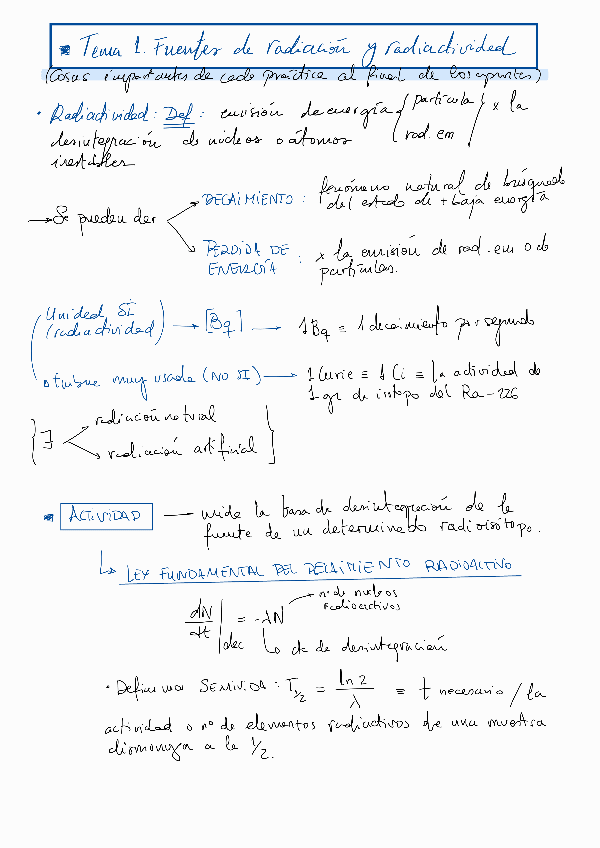 * Tema 1. Fuentes de radiación y radiactividad
(Cosas importantes de cada práctica al final de los apuntes)
· Radiactividad: Def: emisión de energía { partícula / rad. em } x la
desintegración de núcleos o átomos
inestables
→ Se pueden dar
DECAIMIENTO: fenómeno natural de búsqueda
del estado de + baja energía
PERDIDA DE ENERGÍA: x la emisión de rad. em o de
partículas.
Unidad SI (radiactividad) → [Bq] → 1 Bq ≡ 1 decaimiento por segundo
muy usada (NO SI) → 1 Curie ≡ 1 Ci ≡ La actividad de
1 gr de isótopo del Ra-226
∃
radiación natural
radiación artificial
* ACTIVIDAD — mide la tasa de desintegración de la
fuente de un determinado radioisótopo.
↳ LEY FUNDAMENTAL DEL DECAIMIENTO RADIOACTIVO
dN/dt |dec = -λN
→ nº de núcleos
radioactivos
↳ cte de desintegración
· Definimos SEMIVIDA: T1/2 = ln 2 / λ ≡ t necesario / la
actividad o nº de elementos radiactivos de una muestra
disminuya a la 1/2.